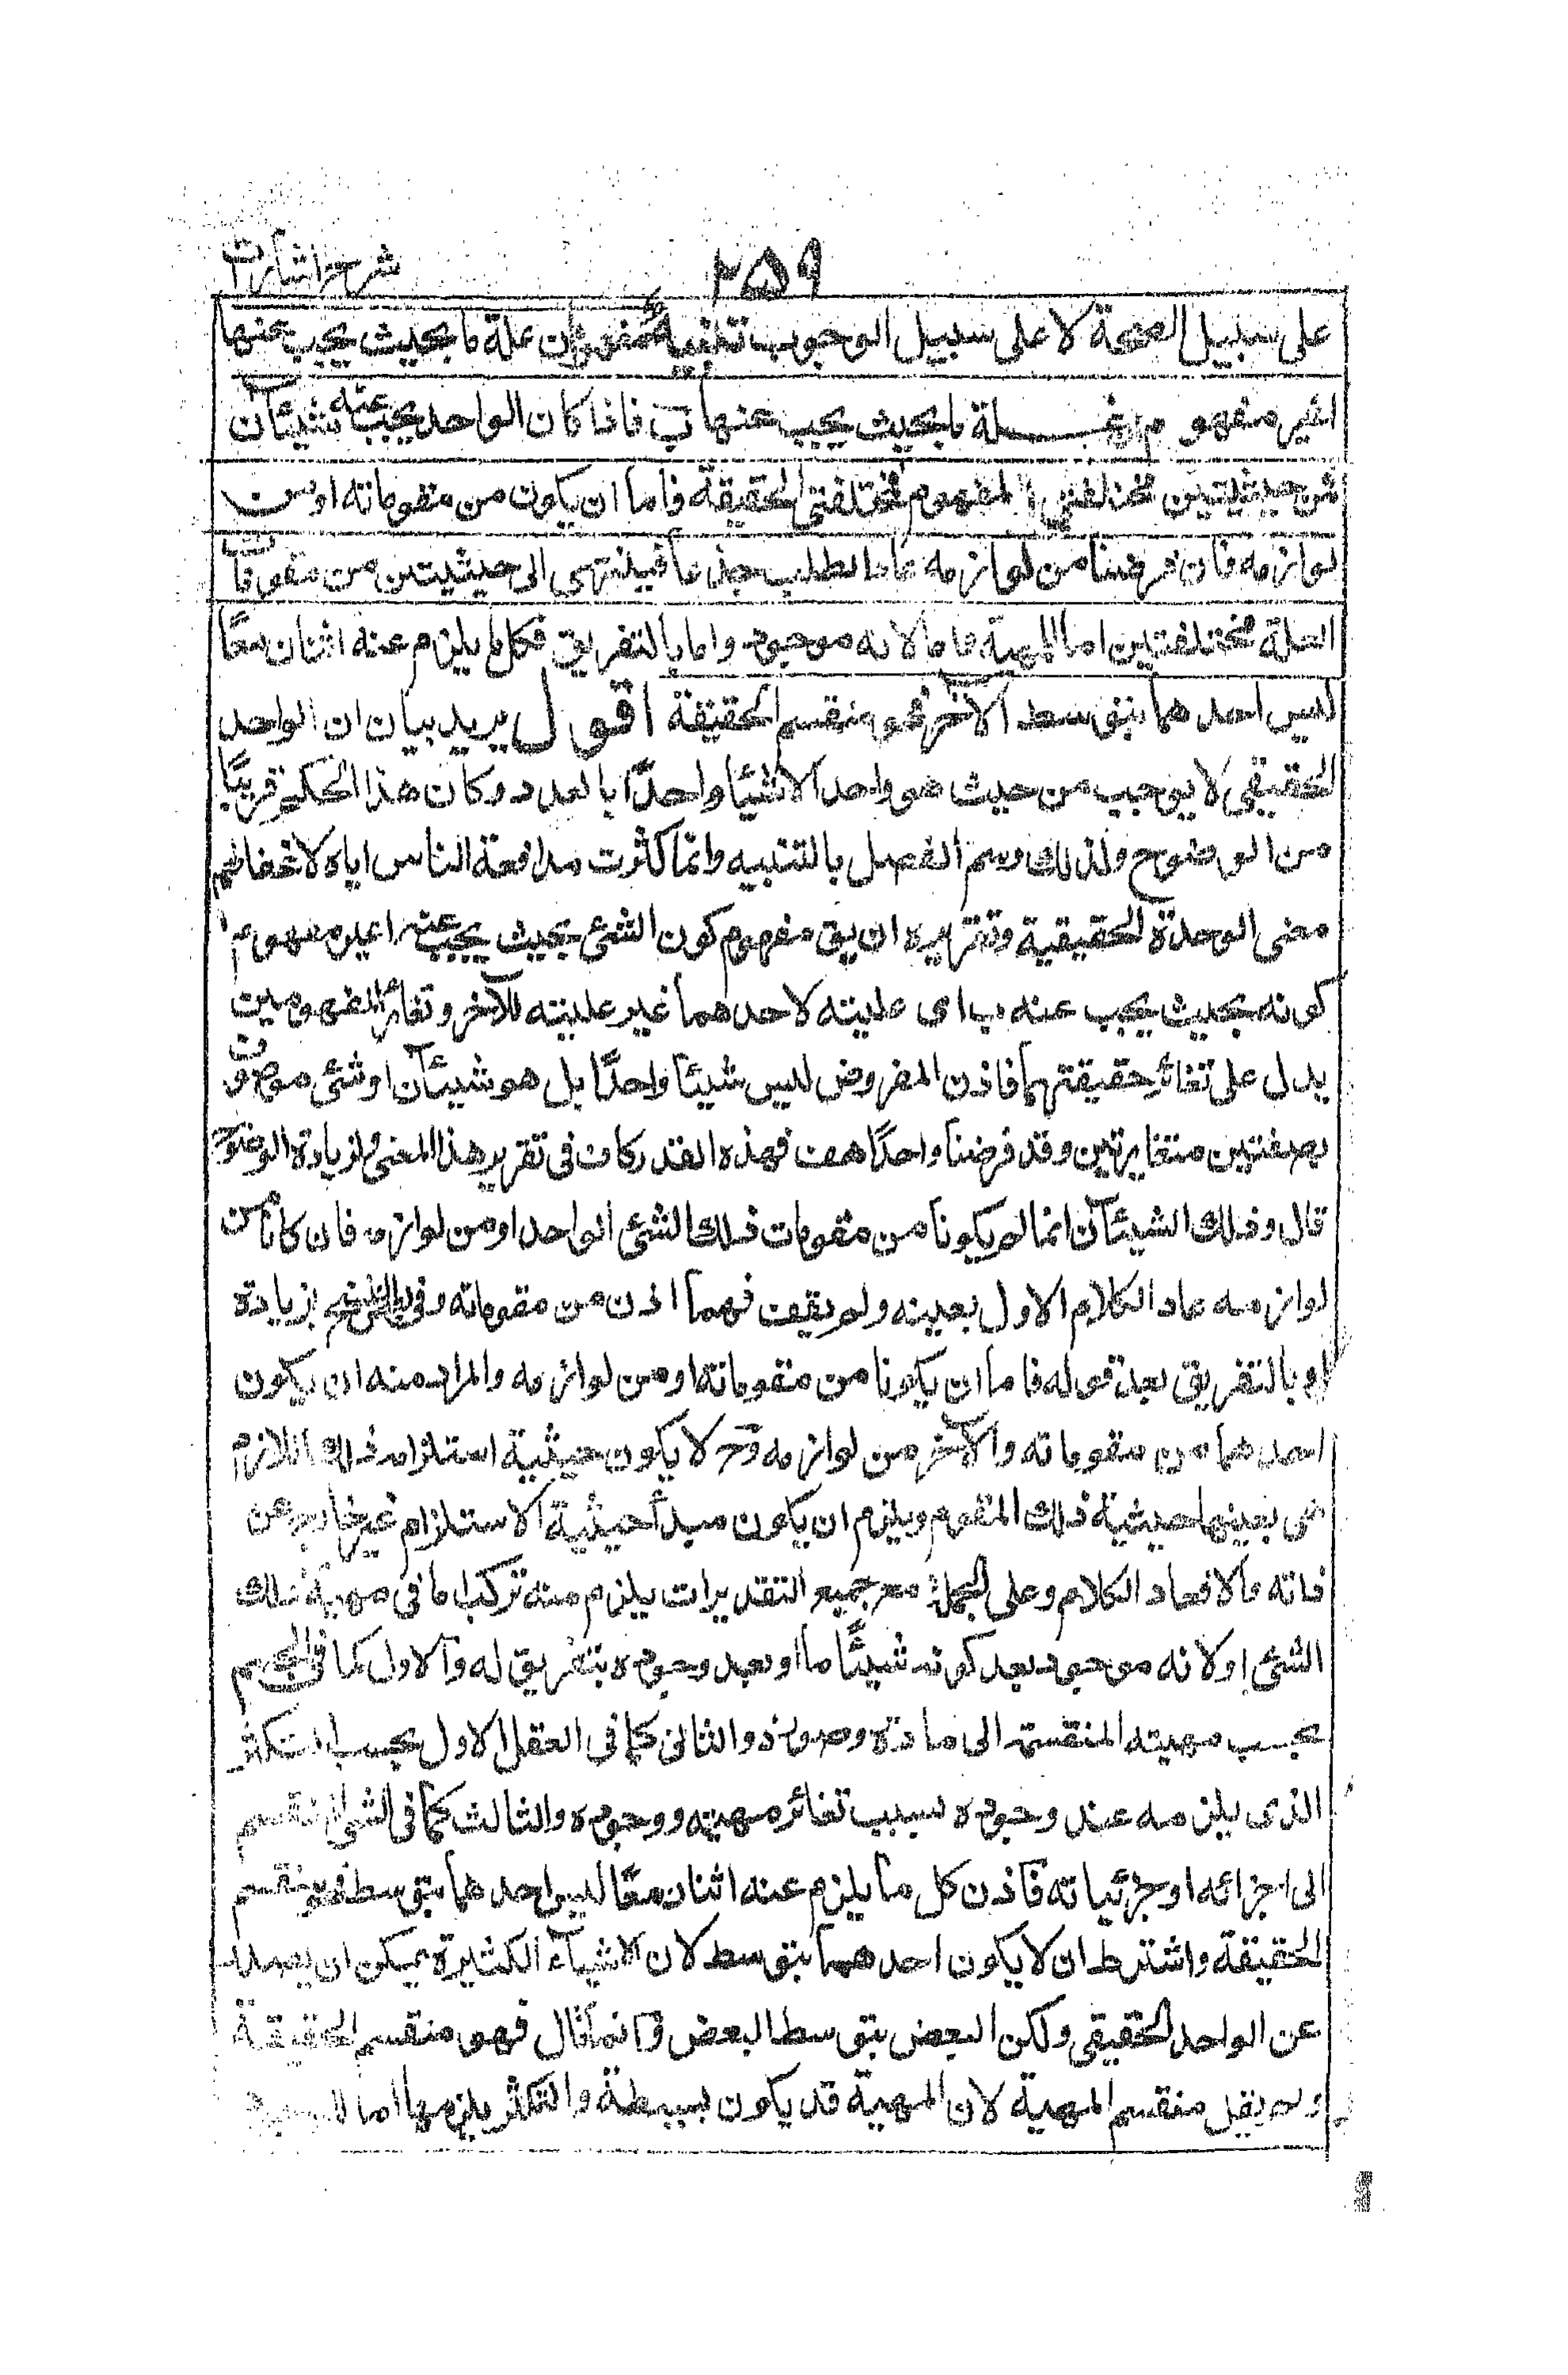 ٢٥٩
شرح اشارات
على سبيل الصحة لا على سبيل الوجوب تنبيه مفهوم ان علة ما بحيث يجب عنها
غير مفهوم ان علة ما بحيث يجب عنها ب فاذا كان الواحد يجب عنه شيئآن
من حيثيتين مختلفتى المفهوم مختلفتى الحقيقة فاما ان يكون من مقوماته او من
لوازمه فان فرضنا من لوازمه عاد الطلب جذعا فينتهى الى حيثيتين من مقومات
العلة مختلفتين اما للمهية واما لانه موجود واما بالتفريق فكل ما يلزم عنه اثنان معًا
ليس احدهما بتوسط الآخر فهو منقسم الحقيقة اقول يريد بيان ان الواحد
الحقيقى لا يوجب من حيث هو واحد الا شيئا واحدًا بالعدد وكان هذا الحكم قريبًا
من الوضوح ولذلك وسم الفصل بالتنبيه وانما كثرت مدافعة الناس اياه لاغفالهم
معنى الوحدة الحقيقية وتقريره ان يق مفهوم كون الشئ بحيث يجب عنه ا غير مفهوم
كونه بحيث يجب عنه ب اى عليته لاحدهما غير عليته للآخر وتغائر المفهومين
يدل على تغائر حقيقتهما فاذن المفروض ليس شيئا واحدًا بل هو شيئآن او شئ موصوف
بصفتين متغايرتين وقد فرضنا واحدًا هف فهذه القدر كاف فى تقرير هذا المعنى ولزيادة الوضوح
قال وذلك الشيئآن انما لم يكونا من مقومات ذلك الشئ الواحد او من لوازمه فان كانا من
لوازمه عاد الكلام الاول بعينه ولم يقف فهما اذن من مقوماته وفى بعض النسخ بزيادة
او بالتفريق بعد قوله فاما ان يكونا من مقوماته او من لوازمه والمراد منه ان يكون
احدهما من مقوماته والآخر من لوازمه وح لا يكون حيثية استلزام ذلك اللازم
هى بعينها حيثية ذلك المقوم ويلزم ان يكون مبدأ حيثية الاستلزام غير خارج عن
ذاته والا فعاد الكلام وعلى الجملة مع جميع التقديرات يلزم منه تركب اما فى مهية ذلك
الشئ او لانه موجود بعد كونه شيئًا ما او بعد وجوده بتفريق له والاول كما فى الجسم
بحسب مهيته المنقسمة الى مادة وصورة والثانى كما فى العقل الاول بحسب التكثر
الذى يلزمه عند وجوده بسبب تغائر مهيته ووجوده والثالث كما فى الشئ المنقسم
الى اجزائه او جزئياته فاذن كل ما يلزم عنه اثنان معًا ليس احدهما بتوسط فهو منقسم
الحقيقة واشترط ان لا يكون احدهما بتوسط لان الاشيآء الكثيرة يمكن ان يصدر
عن الواحد الحقيقى ولكن البعض بتوسط البعض وانما قال فهو منقسم الحقيقة
ولم يقل منقسم المهية لان المهية قد يكون بسيطة والتكثر يلزمها اما